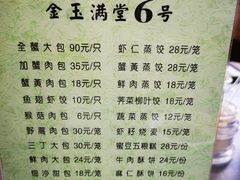 金玉满堂6号
全蟹大包 90元/只 虾仁蒸饺 28元/笼
加蟹肉包 35元/只 蟹黄蒸饺 28元/笼
蟹黄肉包 18元/只 鲜肉蒸饺 18元/笼
鱼翅虾饺 10元/只 荠菜柳叶饺 18元/笼
猴菇肉包 6元/只 蔬菜蒸饺 12元/笼
野鸡肉包 30元/笼 虾籽烧卖 15元/笼
三丁大包 30元/笼 蜜豆五粮糕 28元/份
鲜肉大包 24元/笼 牛肉酥饼 24元/份
细沙甜包 18元/笼 麻仁酥饼 16元/份